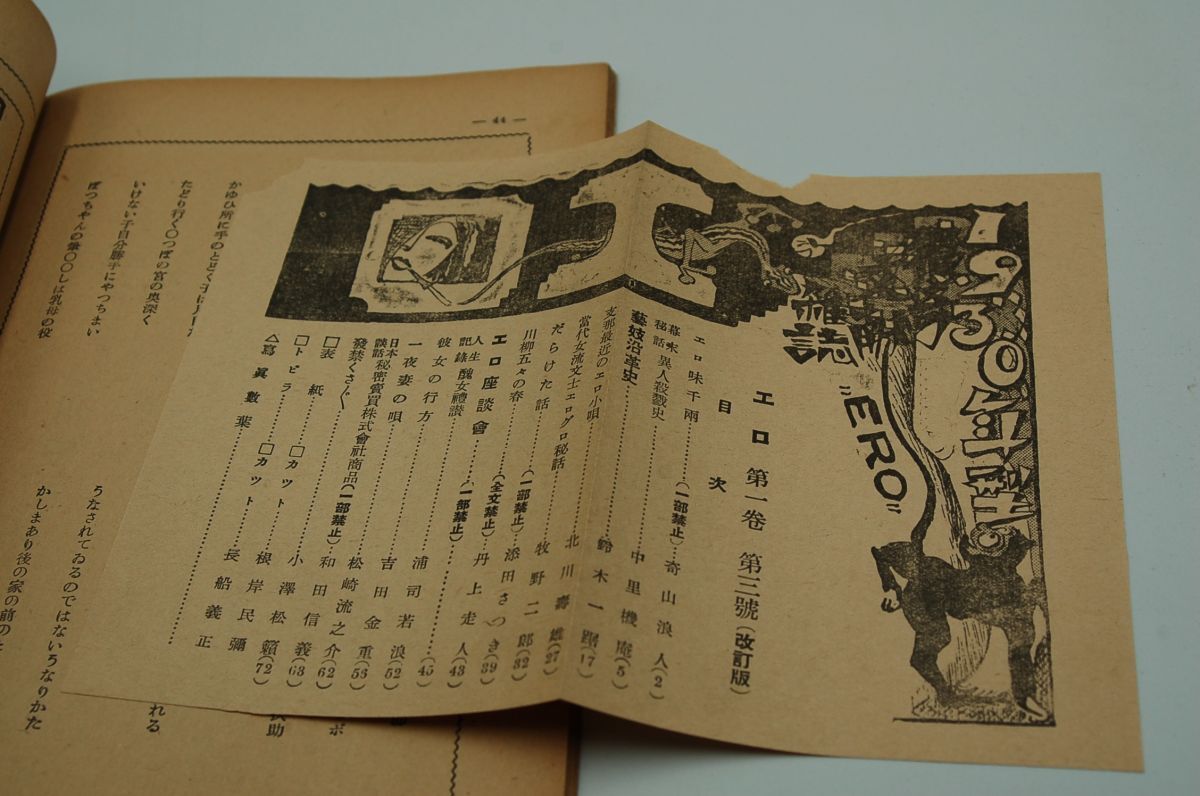 1930年型
雑誌
"ERO"
エロ
エロ 第一卷 第三號(改訂版)
目次
エロ味千兩………(一部禁止)…奇山浪人(2)
幕末秘話 異人殺戮史………中里機庵(5)
藝妓沿革史………鈴木一
支那最近のエロ小唄………(17)
當代女流文士エログロ秘話………北川壽雄(27)
だらけた話………牧野二郎(32)
川柳五々の春………(一部禁止)…添田さつき(39)
エロ座談會………(全文禁止)
人生記錄 醜女禮讃………(一部禁止)…丹上走人(43)
彼女の行方………(45)
一夜妻の唄………浦司若浪(52)
日本談話 秘密賣買株式會社商品………吉田金重(53)
發禁くさ〴〵………(一部禁止)…松崎流之介(62)
□表紙………和田信義(63)
□トビラ………□カット………小澤松籟(72)
△寫眞數葉………□カット………根岸民彌
長船義正
— 44 —
かゆひ所に手のとどく
たどり行く〇つぼの宮の奥深く
いけない子自分勝手にやつちまい
ぼつちやんの筆〇〇しは乳母の役
れる
うなされてゐるのではないうなりかた
かしまあり後の家の前の